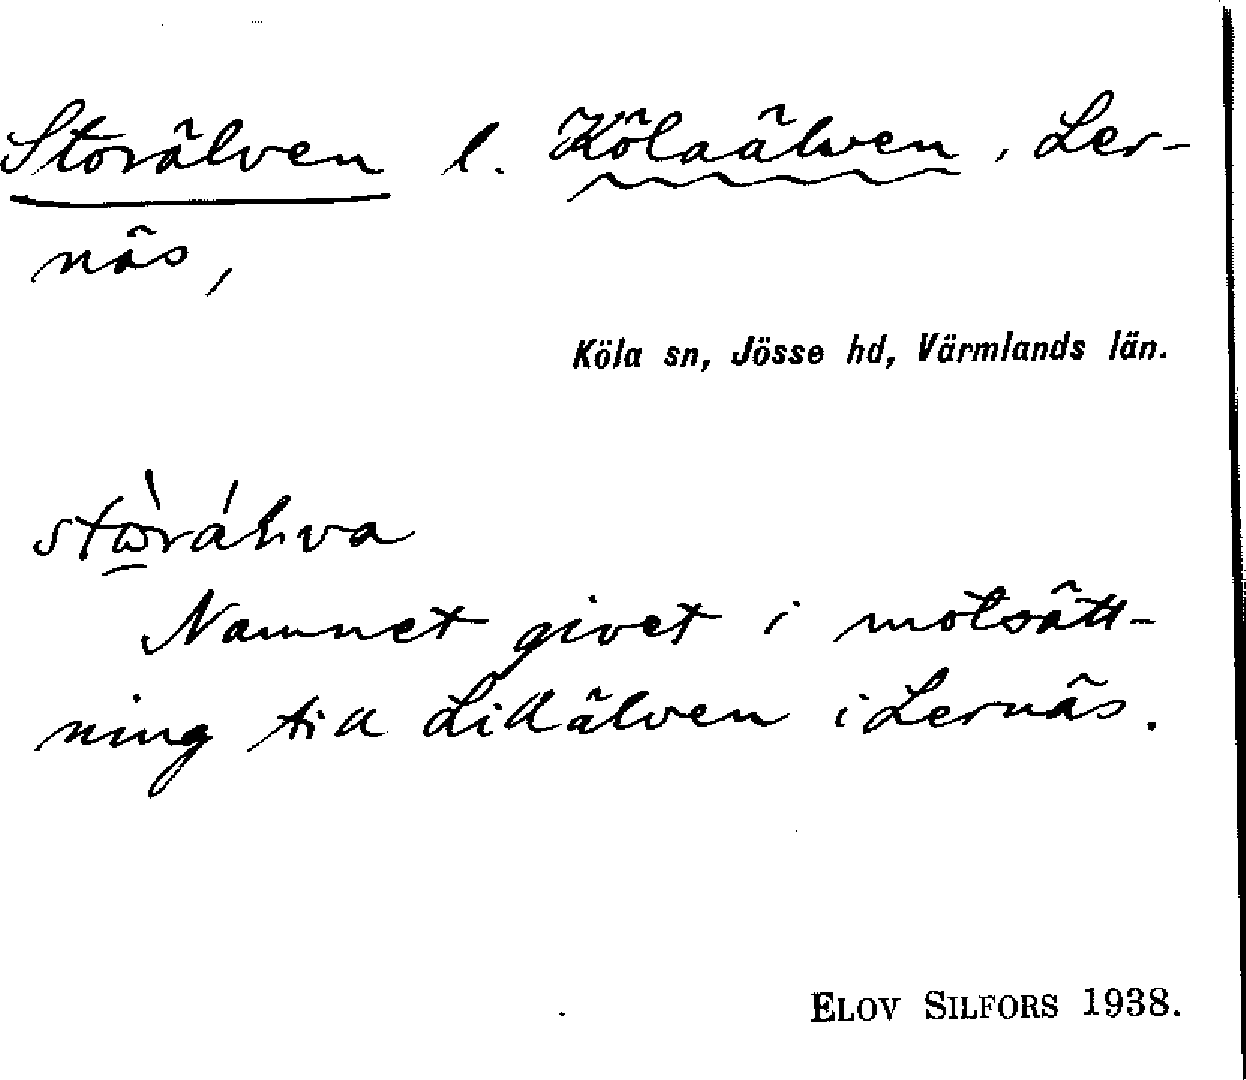 Storälven l. Kölaälven, Ler-
näs,
Köla sn, Jösse hd, Värmlands län.
Namnet givet i motsätt-
ning till Lillälven i Lernäs.
ELOV SILFORS 1938.